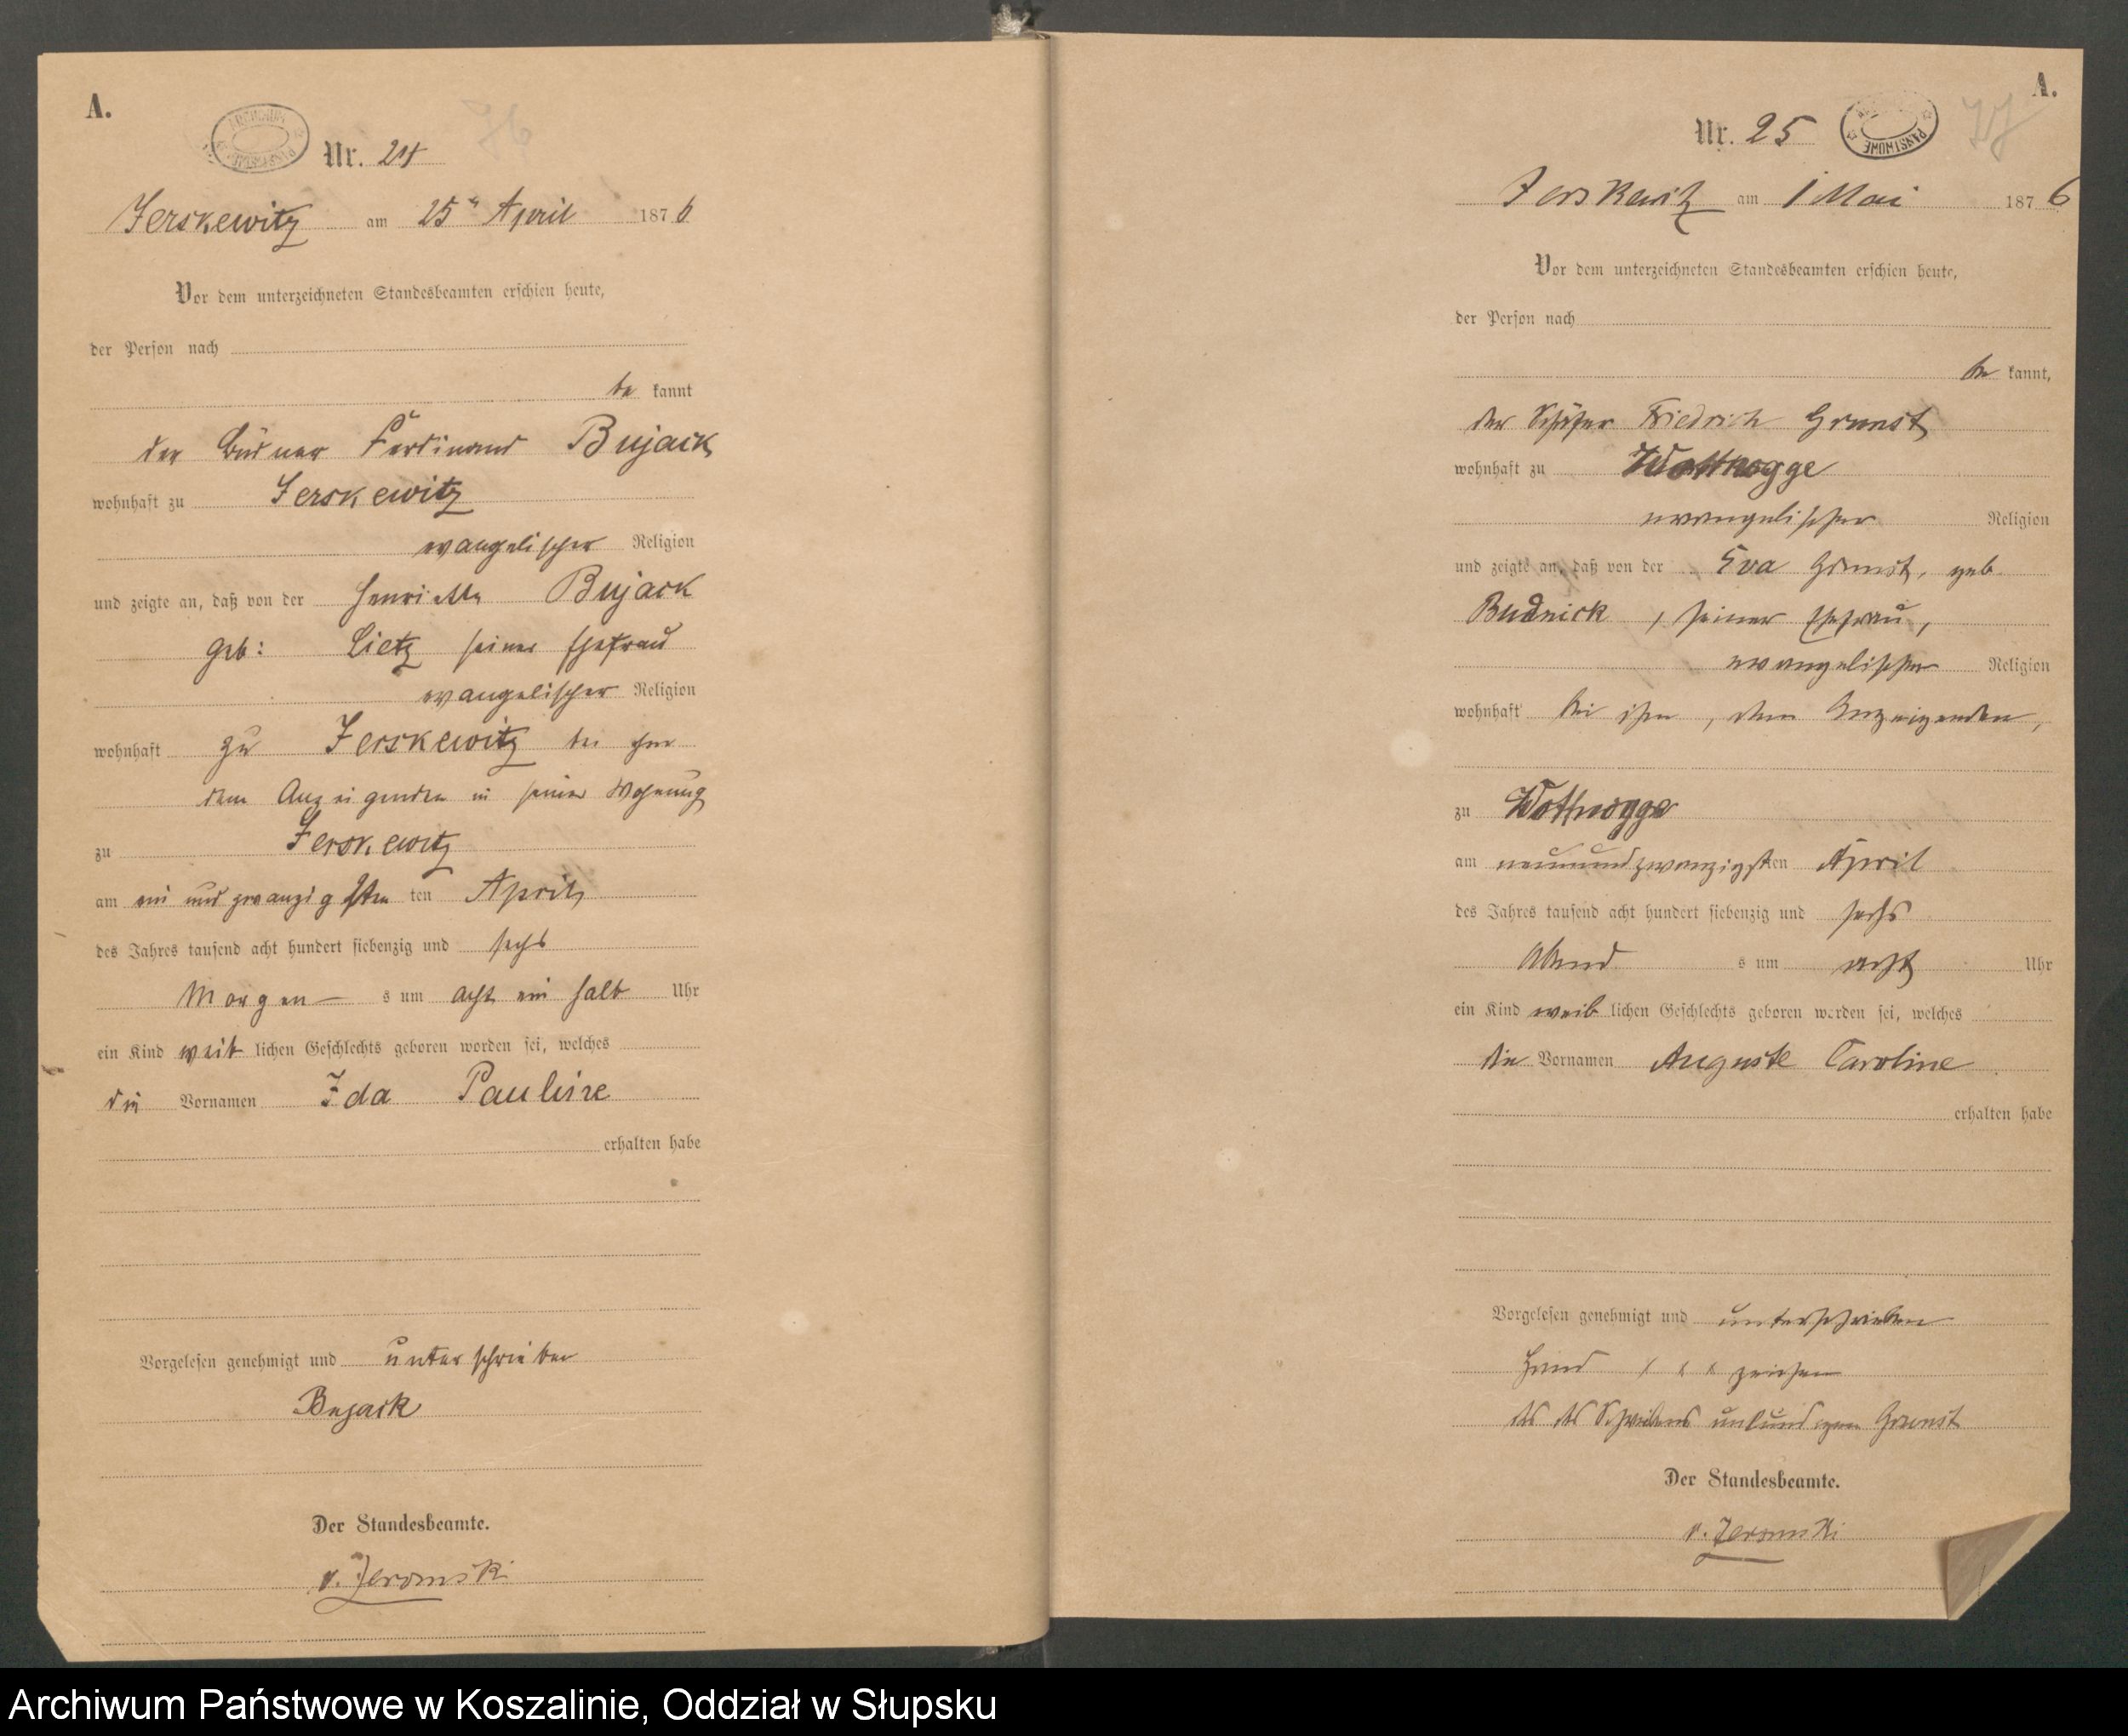 A.
Nr. 24
Jerskewitz am 25ten April 1876
Vor dem unterzeichneten Standesbeamten erschien heute,
der Person nach
be kannt
der Büdner Ferdinand Bujack
wohnhaft zu Jerskewitz
evangelischer Religion
und zeigte an, daß von der Henriette Bujack
geb: Lietz seiner Ehefrau
evangelischer Religion
wohnhaft zu Jerskewitz bei ihm
dem Anzeigenden in seiner Wohnung
zu Jerskewitz
am ein und zwanzigsten ten April
des Jahres tausend acht hundert siebenzig und sechs
Morgen s um acht ein halb Uhr
ein Kind weib lichen Geschlechts geboren worden sei, welches
die Vornamen Ida Pauline
erhalten habe
Vorgelesen genehmigt und unterschrieben
Bujack
Der Standesbeamte.
v. Jeromski
A.
Nr. 25
PANSTWOWE
Jerskewitz am 1 Mai 1876
Vor dem unterzeichneten Standesbeamten erschien heute,
der Person nach
be kannt,
der Schäfer Friedrich
wohnhaft zu Wottnogge
evangelischer Religion
und zeigte an, daß von der Eva geb.
Budnick, seiner Ehefrau,
evangelischer Religion
wohnhaft bei ihm, dem Anzeigenden,
zu Wottnogge
am neunundzwanzigsten April
des Jahres tausend acht hundert siebenzig und sechs
Abend s um acht Uhr
ein Kind weib lichen Geschlechts geboren worden sei, welches
die Vornamen Auguste Caroline
erhalten habe
Vorgelesen genehmigt und unterschrieben
Hand x x x zeichen
des des Schreibens unkundigen
Der Standesbeamte.
v. Jeromski
Archiwum Państwowe w Koszalinie, Oddział w Słupsku